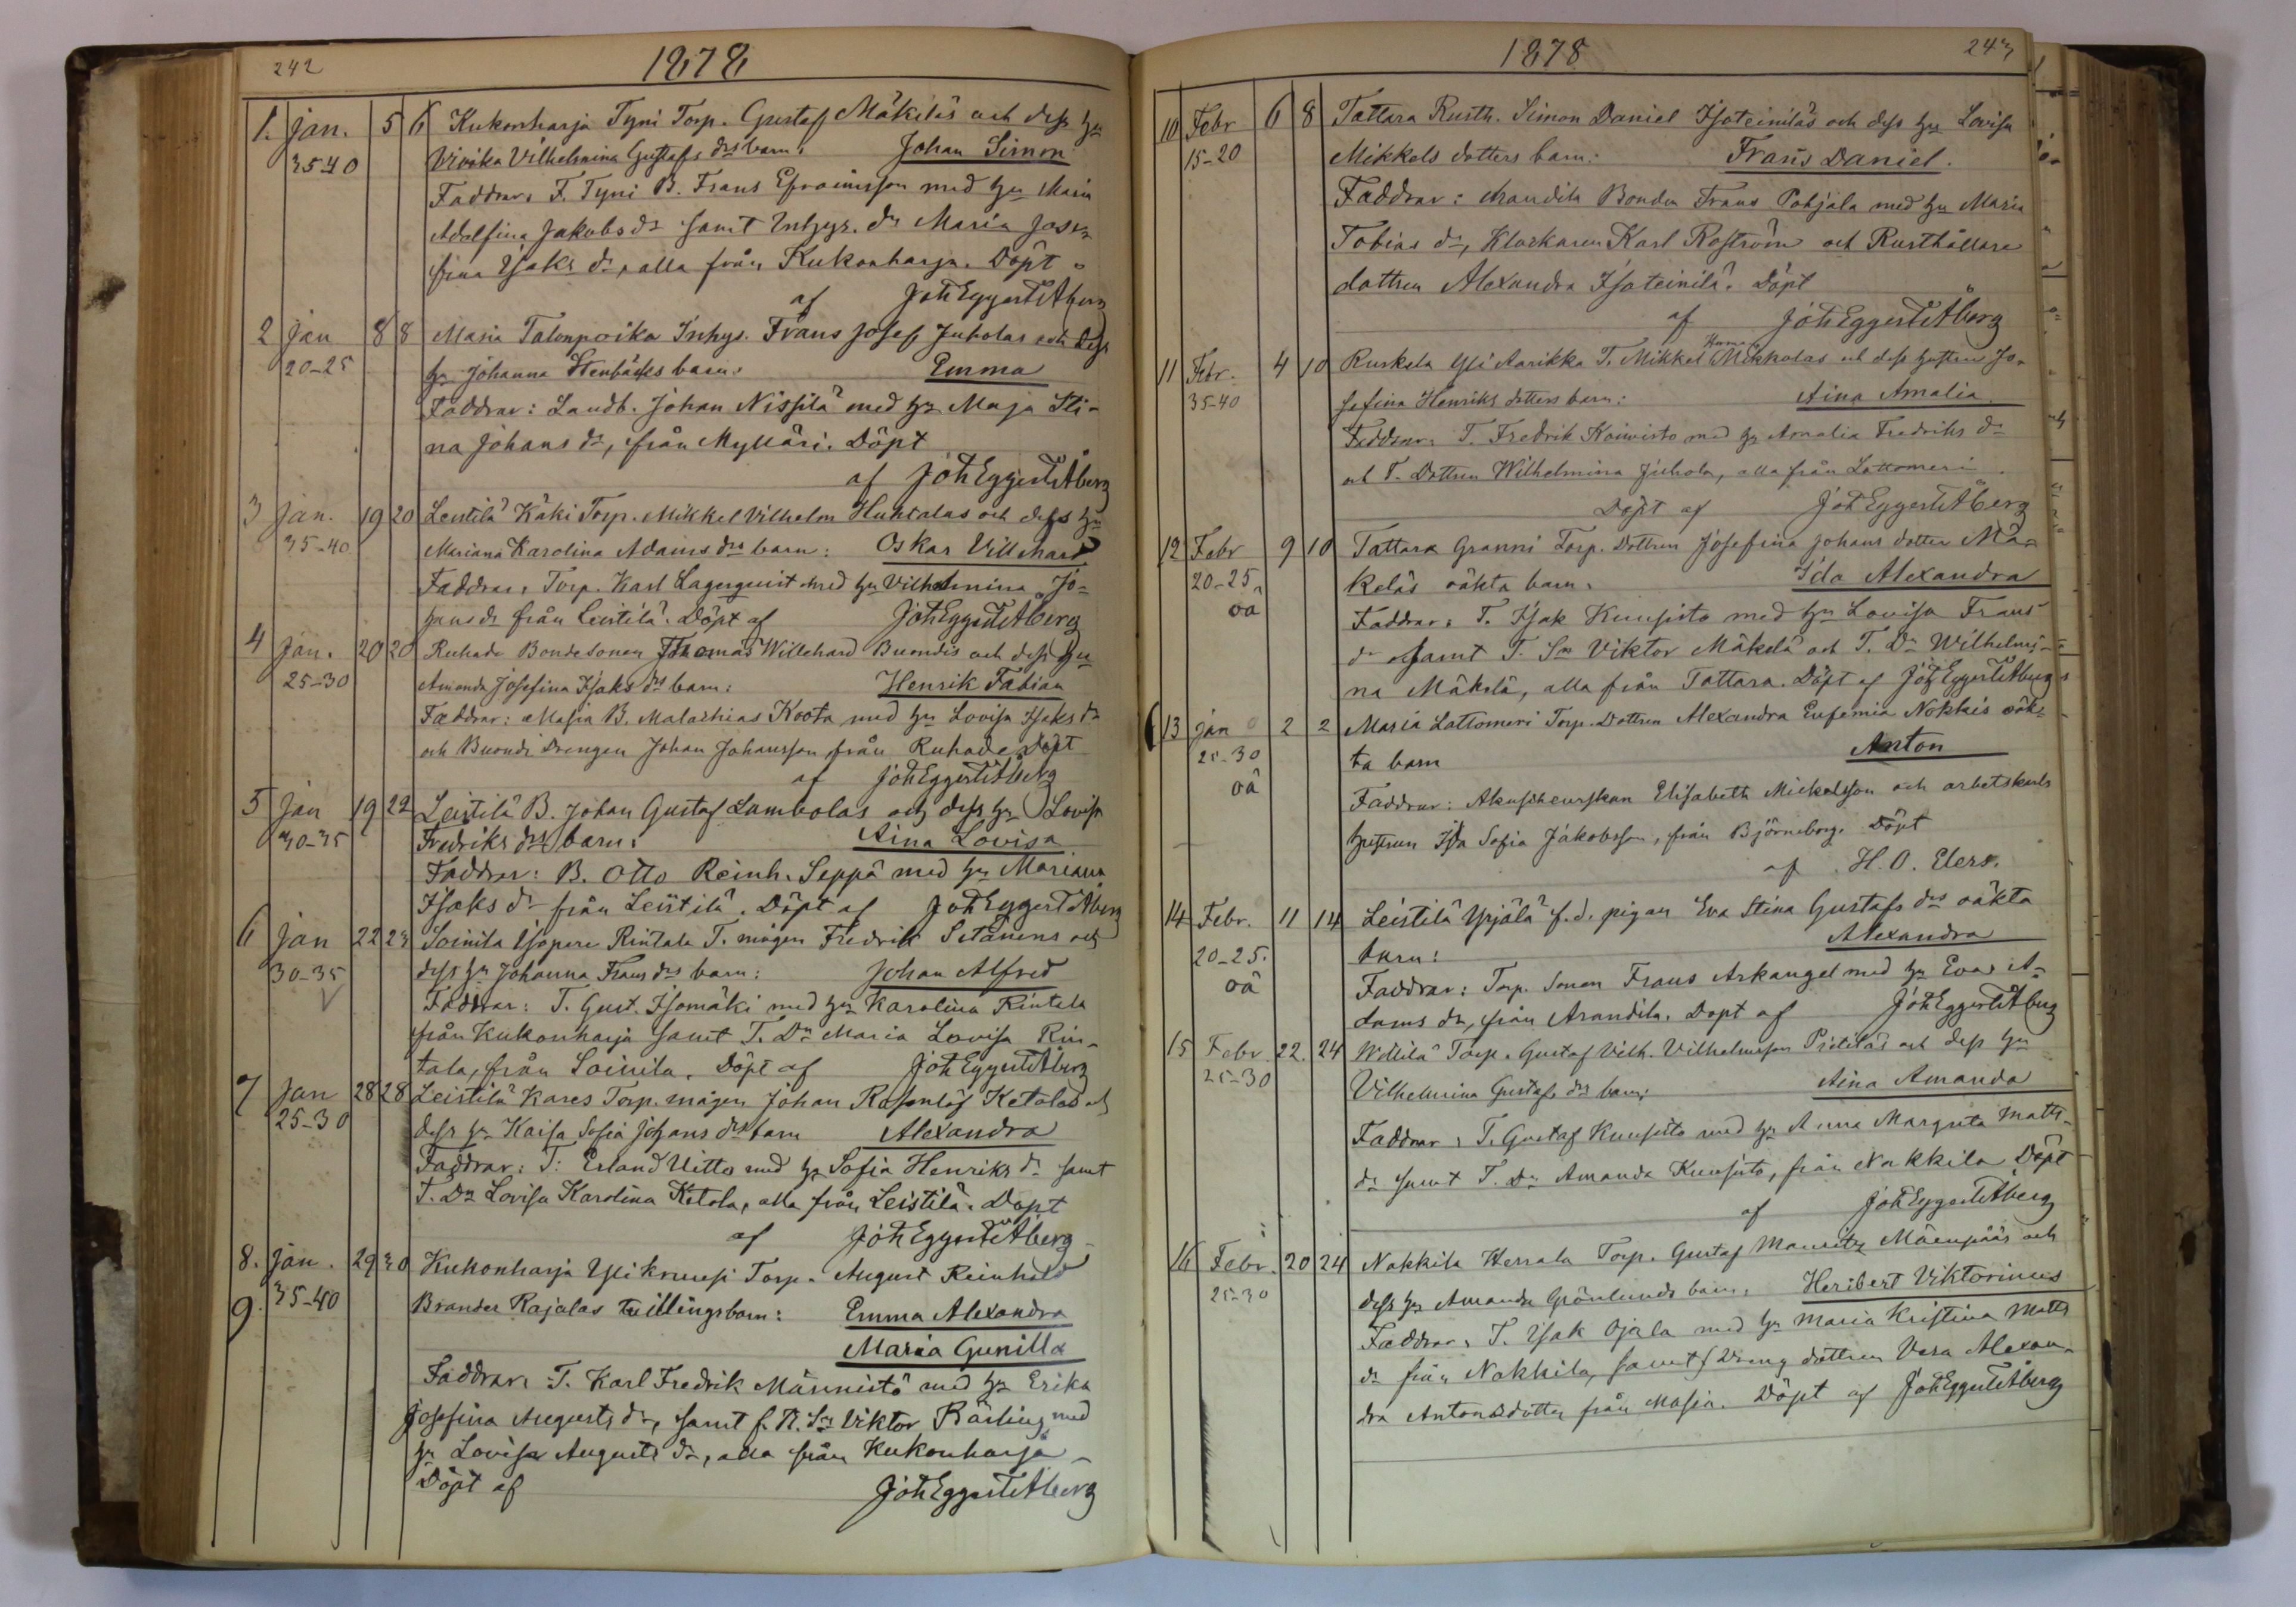 242
1878
1. Jan. 5 6 Kukonharja Tyni Torp. Gustaf Mäkiläs och dess hu
35-40 Vivika Vilhelmina Gustafs drs barn: Johan Simon
Faddrar: F. Tyni B. Frans Efraimsson med hu Maria
Adolfina Jakobs dr samt Inhys. dr Maria Jose-
fina Isaks dr, alla från Kukonharja. Döpt
af Joh Eggert Åberg
2 Jan 8 8 Masia Talonpoika Inhys. Frans Josef Juholas och dess
20-25 hu Johanna Stenbäcks barn: Emma
Faddrar: Landb. Johan Nissilä med hu Maja Sti-
na Johans dr, från Mylläri. Döpt
af Joh Eggert Åberg
3 Jan. 19 20 Leistilä Käki Torp. Mikkel Vilhelm Huhtalas och dess hu
35-40 Mariana Karolina Adams drs barn: Oskar Villehard
Faddrar: Torp. Karl Lagerqvist med hu Vilhelmina Jo-
hans dr från Leistilä. Döpt af Joh Eggert Åberg
4 Jan. 20 20 Ruhade Bondesonen Thomas Willehard Buondis och dess hu
25-30 Amanda Josefina Isaks drs barn: Henrik Fabian
Faddrar: Masia B. Malachias Koota med hu Lovisa Isaks dr
och Buondi Drengen Johan Johansson från Ruhade Döpt
af Joh Eggert Åberg
5 Jan 19 22 Leistilä B. Johan Gustaf Lambolas och dess hu Lovisa
30-35 Fredriks drs barn: Aina Lovisa
Faddrar: B. Otto Reinh. Seppä med hu Mariana
Isaks dr från Leistilä. Döpt af Joh Eggert Åberg
6 Jan 22 23 Soinila Isopere Rintala T. mågen Fredrik Setänens och
30-35 dess hu Johanna Frans drs barn: Johan Alfred
Faddrar: T. Gust. Isomäki med hu Karolina Rintala
från Kukonharja samt T. Dr Maria Lovisa Rin-
tala, från Soinila. Döpt af Joh Eggert Åberg
7 Jan 28 28 Leistilä Kares Torp. mågen Johan Rosenlöf Ketolas och
25-30 dess hu Kaisa Sofia Johans drs barn Alexandra
Faddrar: T. Erland Uitto med hu Sofia Henriks dr samt
T. Dr Lovisa Karolina Ketola, alla från Leistilä. Döpt
af Joh Eggert Åberg
8. Jan. 29 30 Kukonharja Yliknuusi Torp. August Reinhold
9. 35-40 Brander Rajalas tvillingsbarn: Emma Alexandra
Maria Gunilla
Faddrar: T. Karl Fredrik Männistö med hu Erika
Josefina Augusts dr, samt f. R. Sn Viktor Rärling med
hu Lovisa Augusts dr, alla från Kukonharja
Döpt af Joh Eggert Åberg
1878
243
10 Febr 6 8 Tattara Rusth. Simon Daniel Isoteiniläs och dess hu Lovisa
15-20 Mikkels dotters barn: Frans Daniel.
Faddrar: Arandila Bonden Frans Pohjala med hu Maria
Tobias dr, Klockaren Karl Roström och Rusthållare
dottren Alexandra Isoteinilä. Döpt
af Joh Eggert Åberg
11 Febr. 4 10 Ruskela Yli Aarikka T. Mikkel Mikkolas och dess hustru Jo-
35-40 sefina Henriks dotters barn: Aina Amalia
Faddrar: T. Fredrik Koivisto med hu Amalia Fredriks dr
och T. Dottren Wilhelmina Juhola, alla från Lattomeri.
Döpt af Joh Eggert Åberg
12 Febr 9 10 Tattara Granni Torp. Dottren Josefina Johans dotter Mä-
20-25 keläs oäkta barn: Ida Alexandra
oä Faddrar: T. Isak Kuusisto med hu Lovisa Frans
dr samt T. Sn Viktor Mäkelä och T. Dr Wilhelmi-
na Mäkelä, alla från Tattara. Döpt af Joh Eggert Åberg
13 Jan 2 2 Masia Lattomeri Torp. Dottren Alexandra Eufemia Nokkis oäk-
25-30 ta barn Anton
oä Faddrar: Akuscherskan Elisabeth Mickelsson och arbetskarls
hustrun Ida Sofia Jakobsson, från Björneborg. Döpt
af H. O. Elers.
14 Febr. 11 14 Leistilä Yrjälä f.d. pigan Eva Stina Gustafs drs oäkta
20-25. barn: Alexandra
oä Faddrar: Torp. Sonen Frans Arkangel med hu Eva A-
dams dr, från Arandila. Döpt af Joh Eggert Åberg
15 Febr 22. 24 Willilä Torp. Gustaf Vilh. Vilhelmsson Pietiläs och dess hu
25-30 Vilhelmina Gustafs drs barn: Aina Amanda
Faddrar: T. Gustaf Kuusisto med hu Anna Margreta Matts
dr samt T. Dr Amanda Kuusisto, från Nakkila Döpt
af Joh Eggert Åberg
16 Febr. 20 24 Nakkila Herrala Torp. Gustaf Mauritz Mäenpääs och
25-30 dess hu Amanda Grönlunds barn: Heribert Viktorinus
Faddrar: T. Isak Ojala med hu Maria Kristina Matts
dr från Nakkila, samt Dreng dottren Vera Alexan-
dra Antonsdotter från Masia. Döpt af Joh Eggert Åberg